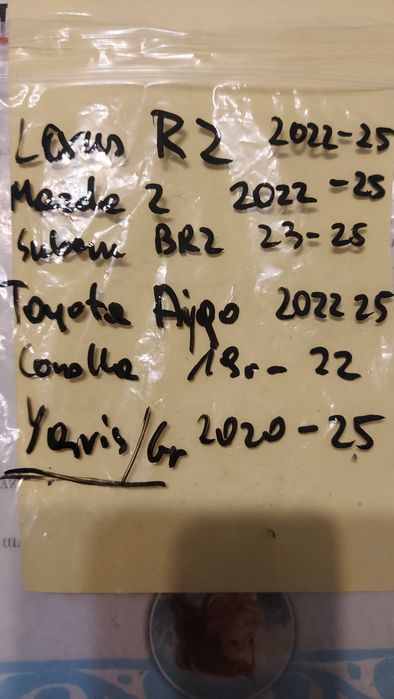 Lexus RZ 2022-25
Mazda 2 2022-25
Subaru BRZ 23-25
Toyota Aygo 2022 25
Corolla 19r- 22
Yaris/Gr 2020-25